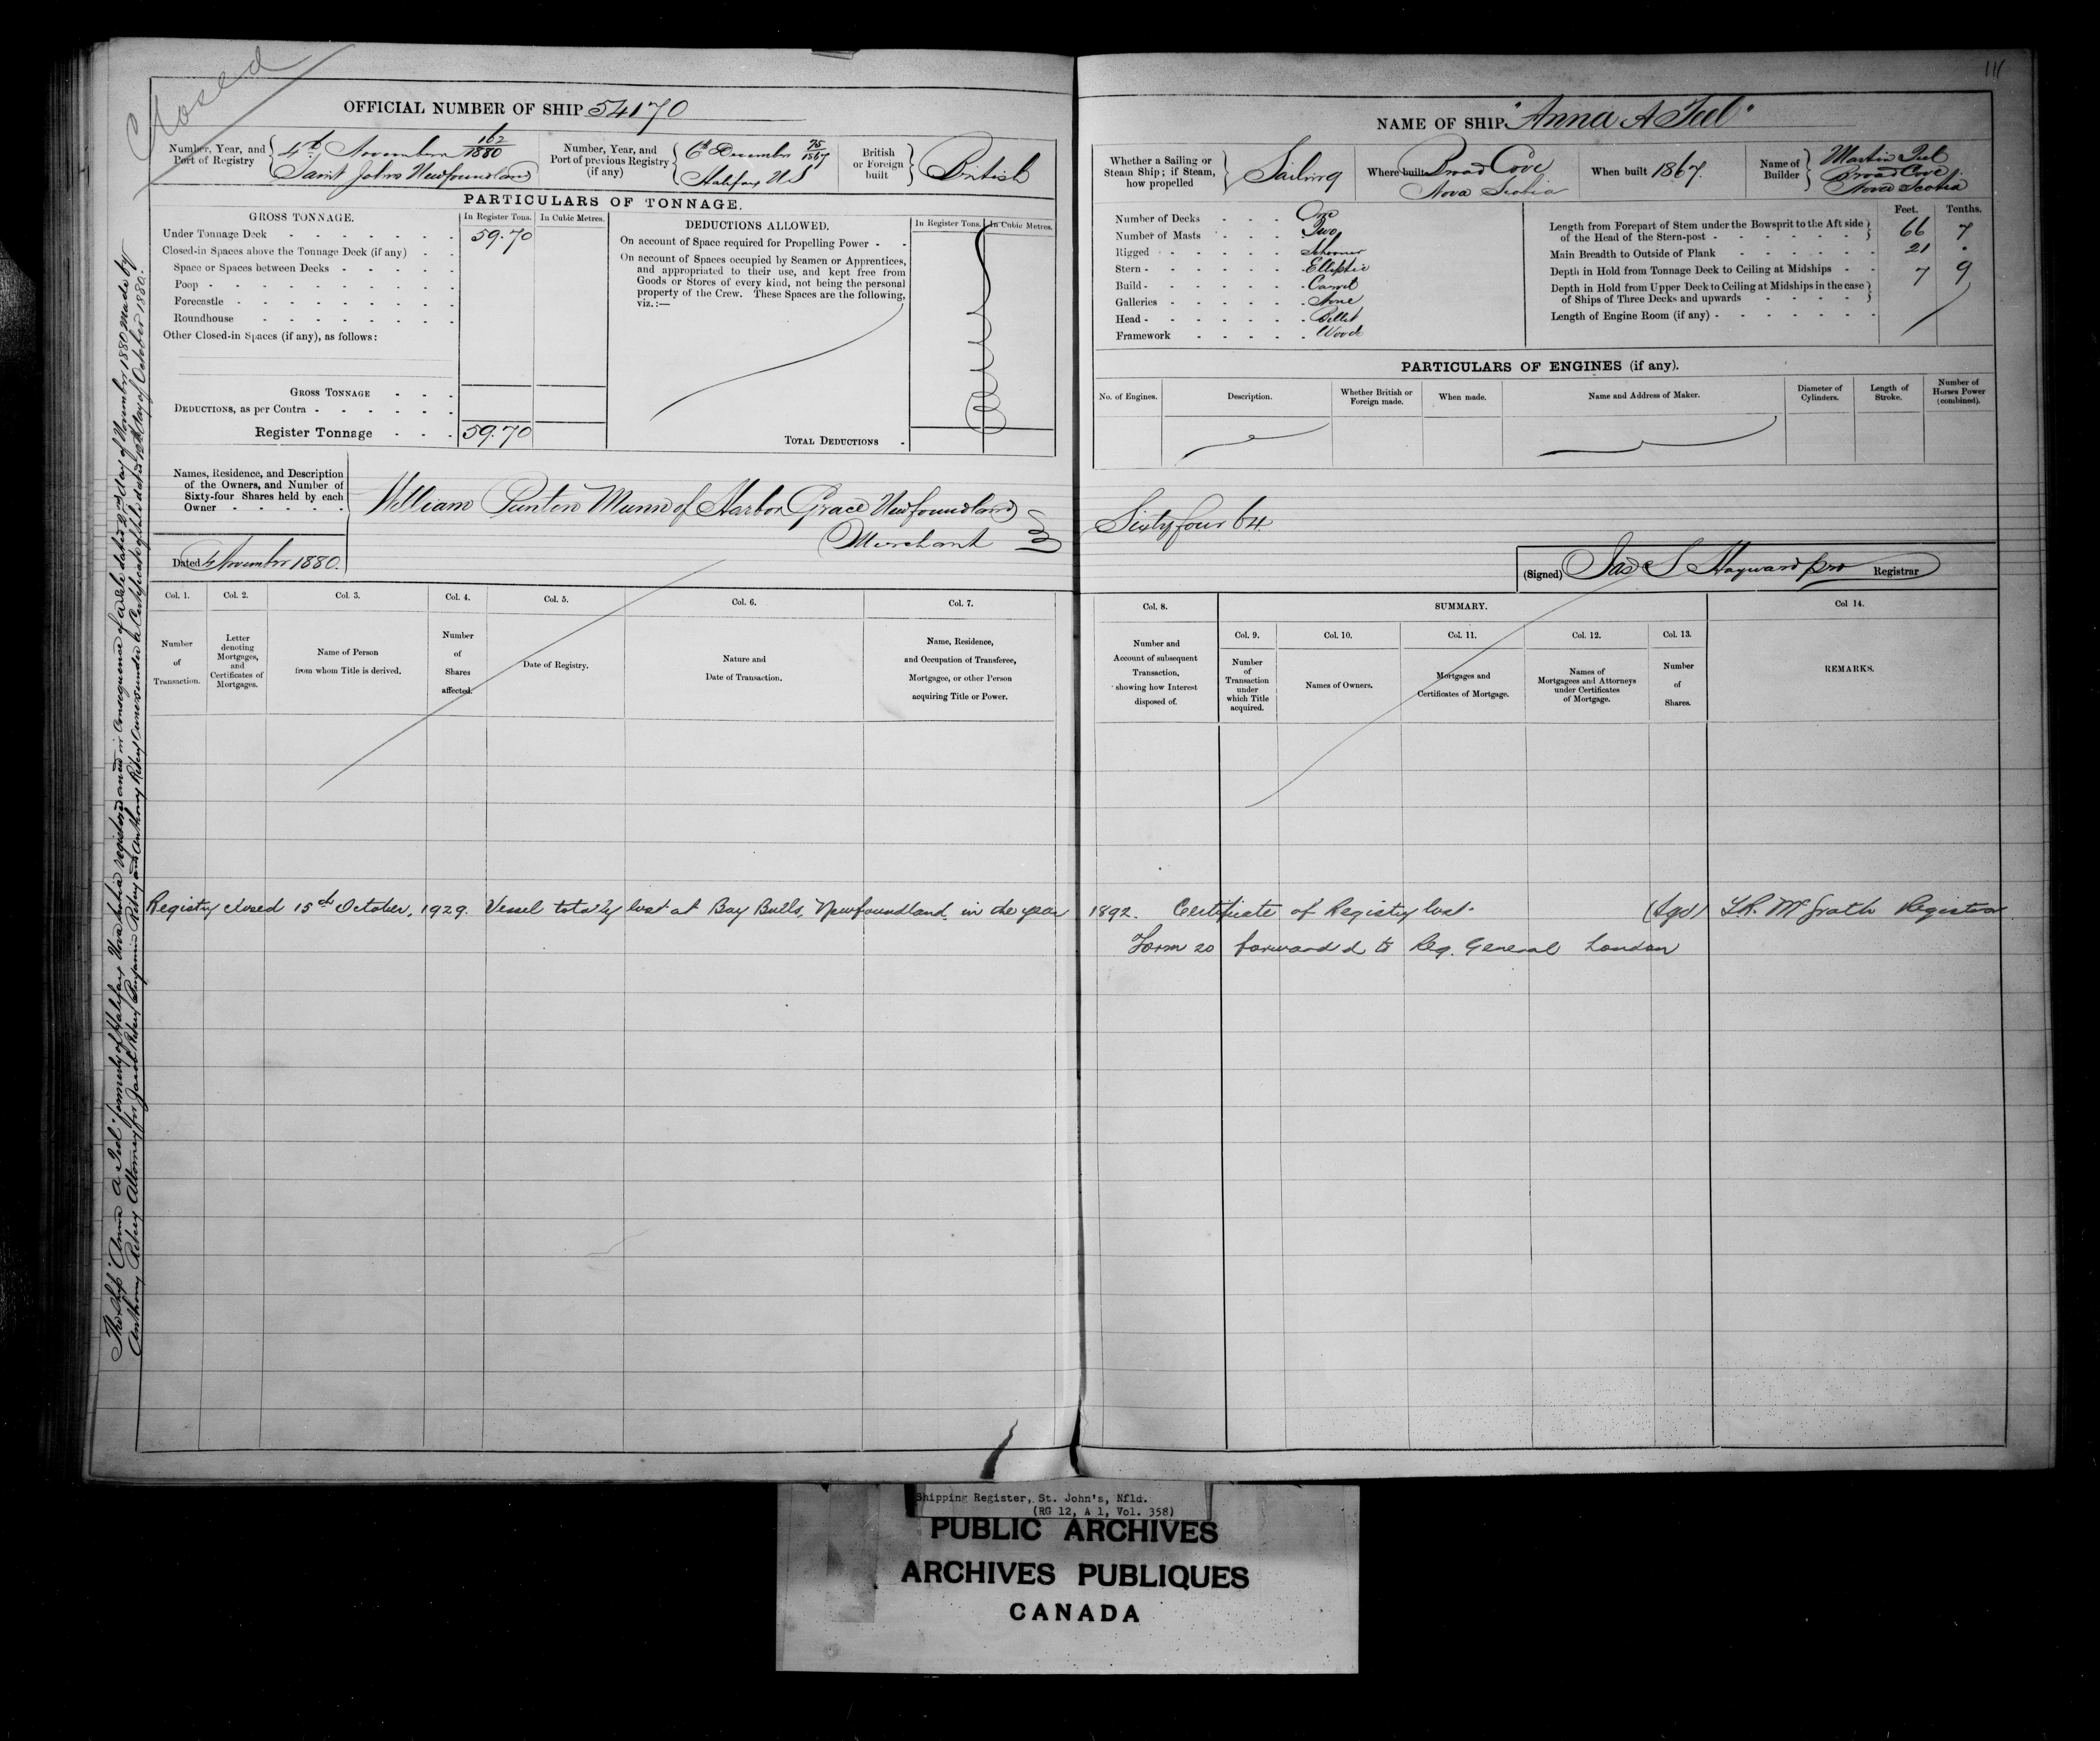 Closed
OFFICIAL NUMBER OF SHIP 54170
Number, Year, and Port of Registry
4th November 162/1880
Saint Johns Newfoundland
Number, Year, and Port of previous Registry (if any)
6th December 75/1867
Halifax NS
British or Foreign built
British
PARTICULARS OF TONNAGE.
GROSS TONNAGE.
In Register Tons. In Cubic Metres.
Under Tonnage Deck 59.70
Closed-in Spaces above the Tonnage Deck (if any)
Space or Spaces between Decks
Poop
Forecastle
Roundhouse
Other Closed-in Spaces (if any), as follows:
GROSS TONNAGE
DEDUCTIONS, as per Contra
Register Tonnage 59.70
DEDUCTIONS ALLOWED.
In Register Tons. In Cubic Metres.
On account of Space required for Propelling Power
On account of Spaces occupied by Seamen or Apprentices,
and appropriated to their use, and kept free from
Goods or Stores of every kind, not being the personal
property of the Crew. These Spaces are the following,
viz.:—
TOTAL DEDUCTIONS
Names, Residence, and Description
of the Owners, and Number of
Sixty-four Shares held by each
Owner
William Punton Munn of Harbor Grace Newfoundland
Merchant
Dated 4 November 1880.
Col. 1. Col. 2. Col. 3. Col. 4. Col. 5. Col. 6. Col. 7.
Number of Transaction.
Letter denoting Mortgages, and Certificates of Mortgages.
Name of Person from whom Title is derived.
Number of Shares affected.
Date of Registry.
Nature and Date of Transaction.
Name, Residence, and Occupation of Transferee, Mortgagee, or other Person acquiring Title or Power.
Registry closed 15th October, 1929. Vessel totally lost at Bay Bulls, Newfoundland, in the year
The Ship "Anna A Teel" formerly of Halifax Nova Scotia registered anew in Consequence of a Sale dated 2nd day of November 1880 made by
111
NAME OF SHIP "Anna A Teel"
Whether a Sailing or Steam Ship; if Steam, how propelled
Sailing
Where built Broad Cove
Nova Scotia
When built 1867.
Name of Builder
Martin Teel
Broad Cove
Nova Scotia
Number of Decks One
Number of Masts Two
Rigged Schooner
Stern Elliptic
Build Carvel
Galleries None
Head Billet
Framework Wood
Feet. Tenths.
Length from Forepart of Stem under the Bowsprit to the Aft side
of the Head of the Stern-post 66 7
Main Breadth to Outside of Plank 21 "
Depth in Hold from Tonnage Deck to Ceiling at Midships 7 9
Depth in Hold from Upper Deck to Ceiling at Midships in the case
of Ships of Three Decks and upwards
Length of Engine Room (if any)
PARTICULARS OF ENGINES (if any).
No. of Engines.
Description.
Whether British or Foreign made.
When made.
Name and Address of Maker.
Diameter of Cylinders.
Length of Stroke.
Number of Horses Power (combined).
Sixty four 64
(Signed) Jas S Hayward pro Registrar
Col. 8. SUMMARY. Col 14.
Col. 9. Col. 10. Col. 11. Col. 12. Col. 13.
Number and Account of subsequent Transaction, showing how Interest disposed of.
Number of Transaction under which Title acquired.
Names of Owners.
Mortgages and Certificates of Mortgage.
Names of Mortgagees and Attorneys under Certificates of Mortgage.
Number of Shares.
REMARKS.
1892. Certificate of Registry lost. (Sgd) McGrath Registrar
Form 20 forwarded to Reg. General London
Shipping Register, St. John's, Nfld.
(RG 12, A 1, Vol. 358)
PUBLIC ARCHIVES
ARCHIVES PUBLIQUES
CANADA